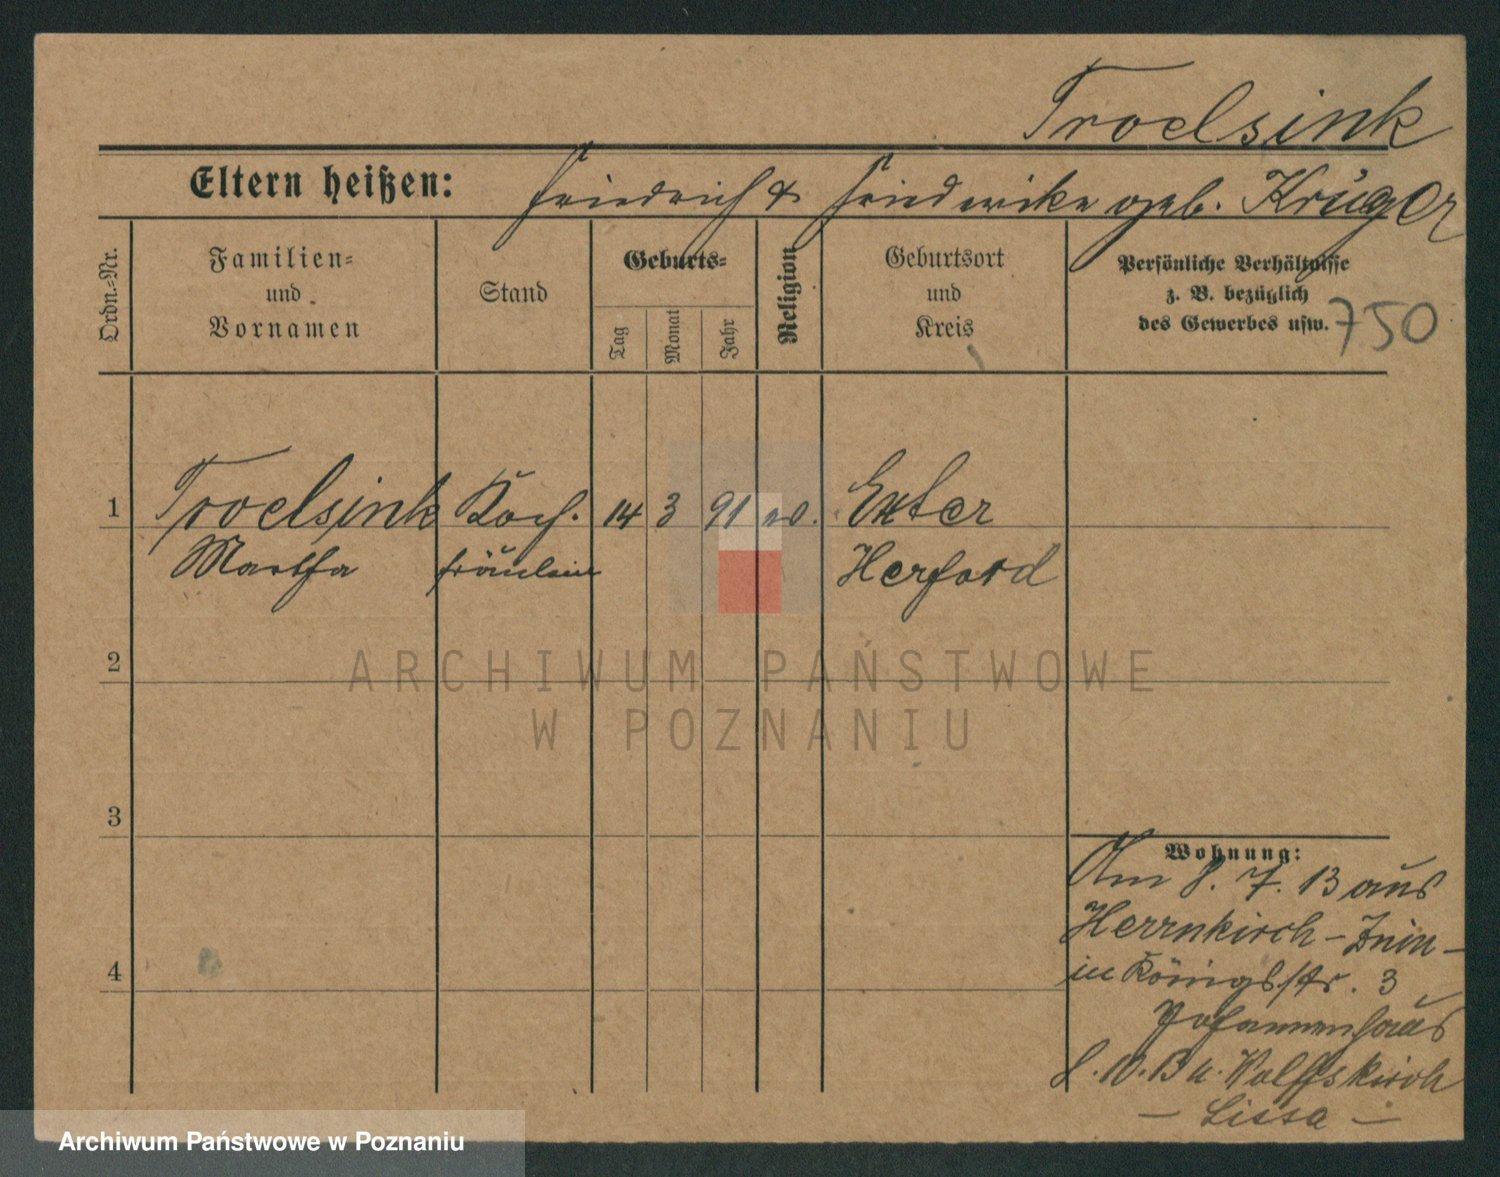 Troelsink
Eltern heißen: Friedrich & Friederike geb. Krüger
Ordn.-Nr.
Familien-
und
Vornamen
Stand
Geburts-
Tag
Monat
Jahr
Religion
Geburtsort
und
Kreis
Persönliche Verhältnisse
z. B. bezüglich
des Gewerbes usw.
750
1 Troelsink Koch. 14 3 91 ev. Exter
Martha fräulein Herford
2
3
4
Wohnung:
Am 8. 7. 13 aus
Herrnkirch - Znin -
in Königsstr. 3
Johannenhaus
8. 10. 13 n. Wolfskirch
- Lissa -
ARCHIWUM PAŃSTWOWE
W POZNANIU
Archiwum Państwowe w Poznaniu